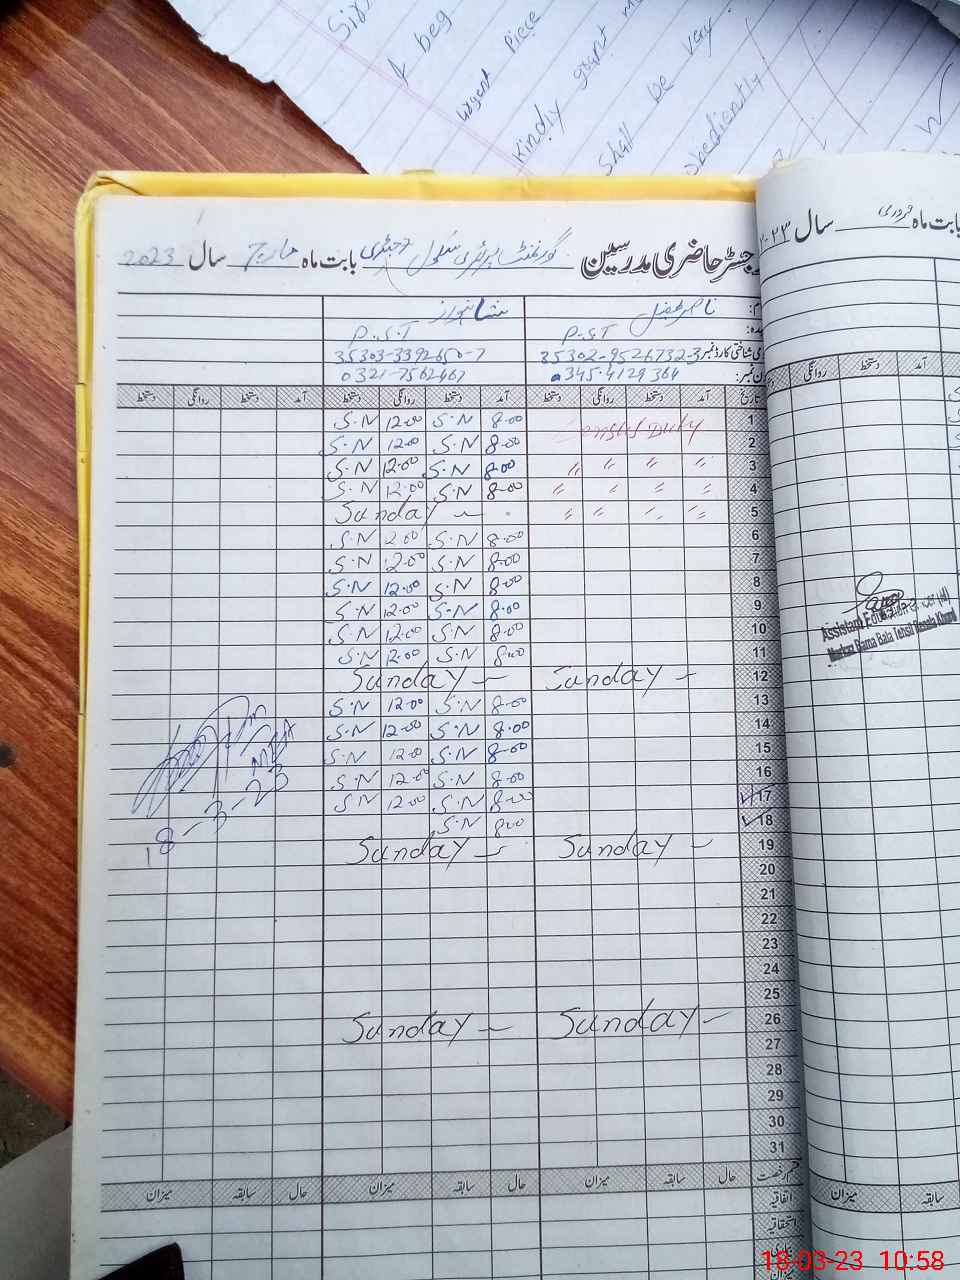 beg
urgent Piece
Kindly grant
Shall be very
obediently
رجسٹر حاضری مدرسین گورنمنٹ پرائمری سکول بابت ماہ مارچ سال 2023
بابت ماہ فروری سال
ناصر شاہنواز
P.S.T P.S.T
شناختی کارڈ نمبر 35302-9526732-3 35303-3392650-7
فون نمبر: 0345-4129364 0321-7562467
تاریخ آمد دستخط روانگی دستخط آمد دستخط روانگی دستخط آمد دستخط روانگی دستخط
آمد دستخط روانگی
1 Census Duty 8.00 S.N 12.00 S.N
2 8.00 S.N 12.00 S.N
3 〃 〃 〃 〃 8.00 S.N 12.00 S.N
4 〃 〃 〃 〃 8.00 S.N 12.00 S.N
5 〃 〃 〃 〃 Sunday —
6 8.00 S.N 2.00 S.N
7 8.00 S.N 2.00 S.N
8 8.00 S.N 12.00 S.N
9 8.00 S.N 12.00 S.N
10 8.00 S.N 12.00 S.N
11 8.00 S.N 12.00 S.N
12 Sunday — Sunday —
13 8.00 S.N 12.00 S.N
14 8.00 S.N 12.00 S.N
15 8.00 S.N 12.00 S.N
16 8.00 S.N 12.00 S.N
17 8.00 S.N 12.00 S.N
18 8.00 S.N
19 Sunday — Sunday —
20
21
22
23
24
25
26 Sunday — Sunday —
27
28
29
30
31
18-3-23
Assistant Education Officer (M)
Markaz Bama Bala Tehsil Renala Khurd
قسم رخصت حال سابقہ میزان حال سابقہ میزان حال سابقہ میزان
سابقہ میزان
اتفاقیہ
استحقاقیہ
میزان
18-03-23 10:58